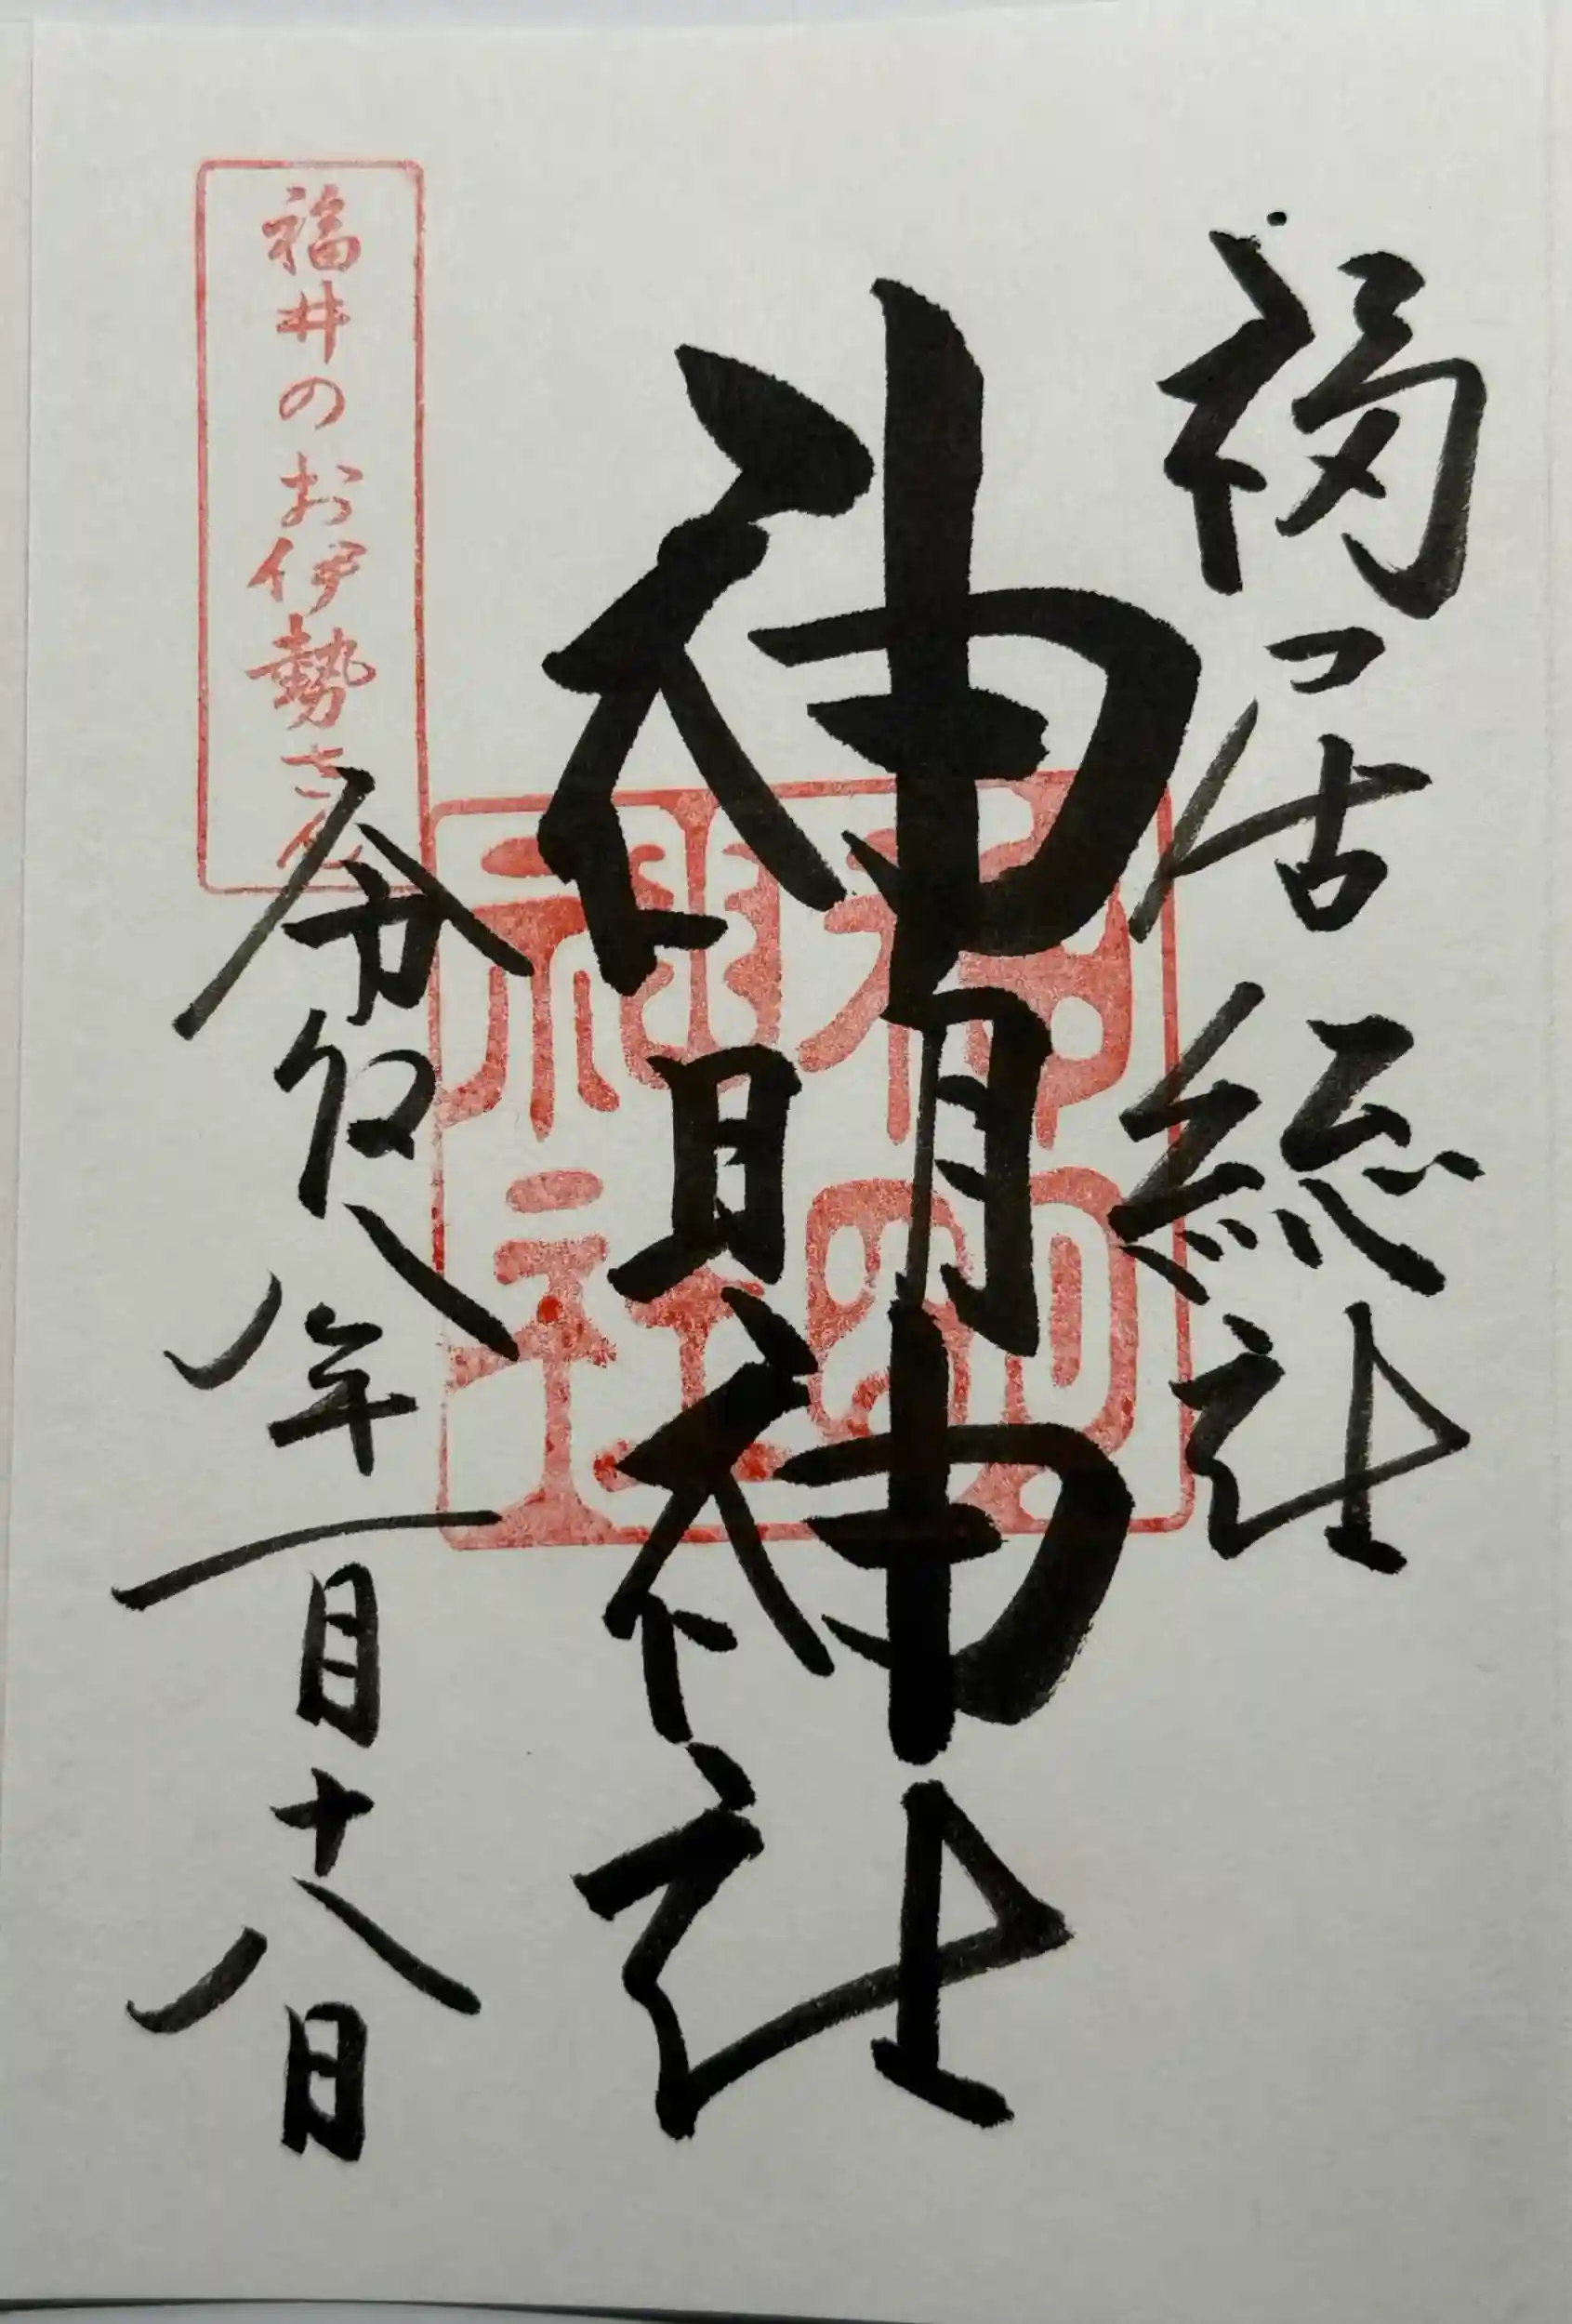 福居総社
神明神社
神明
神社
福井のお伊勢さん
令和八年一月十八日